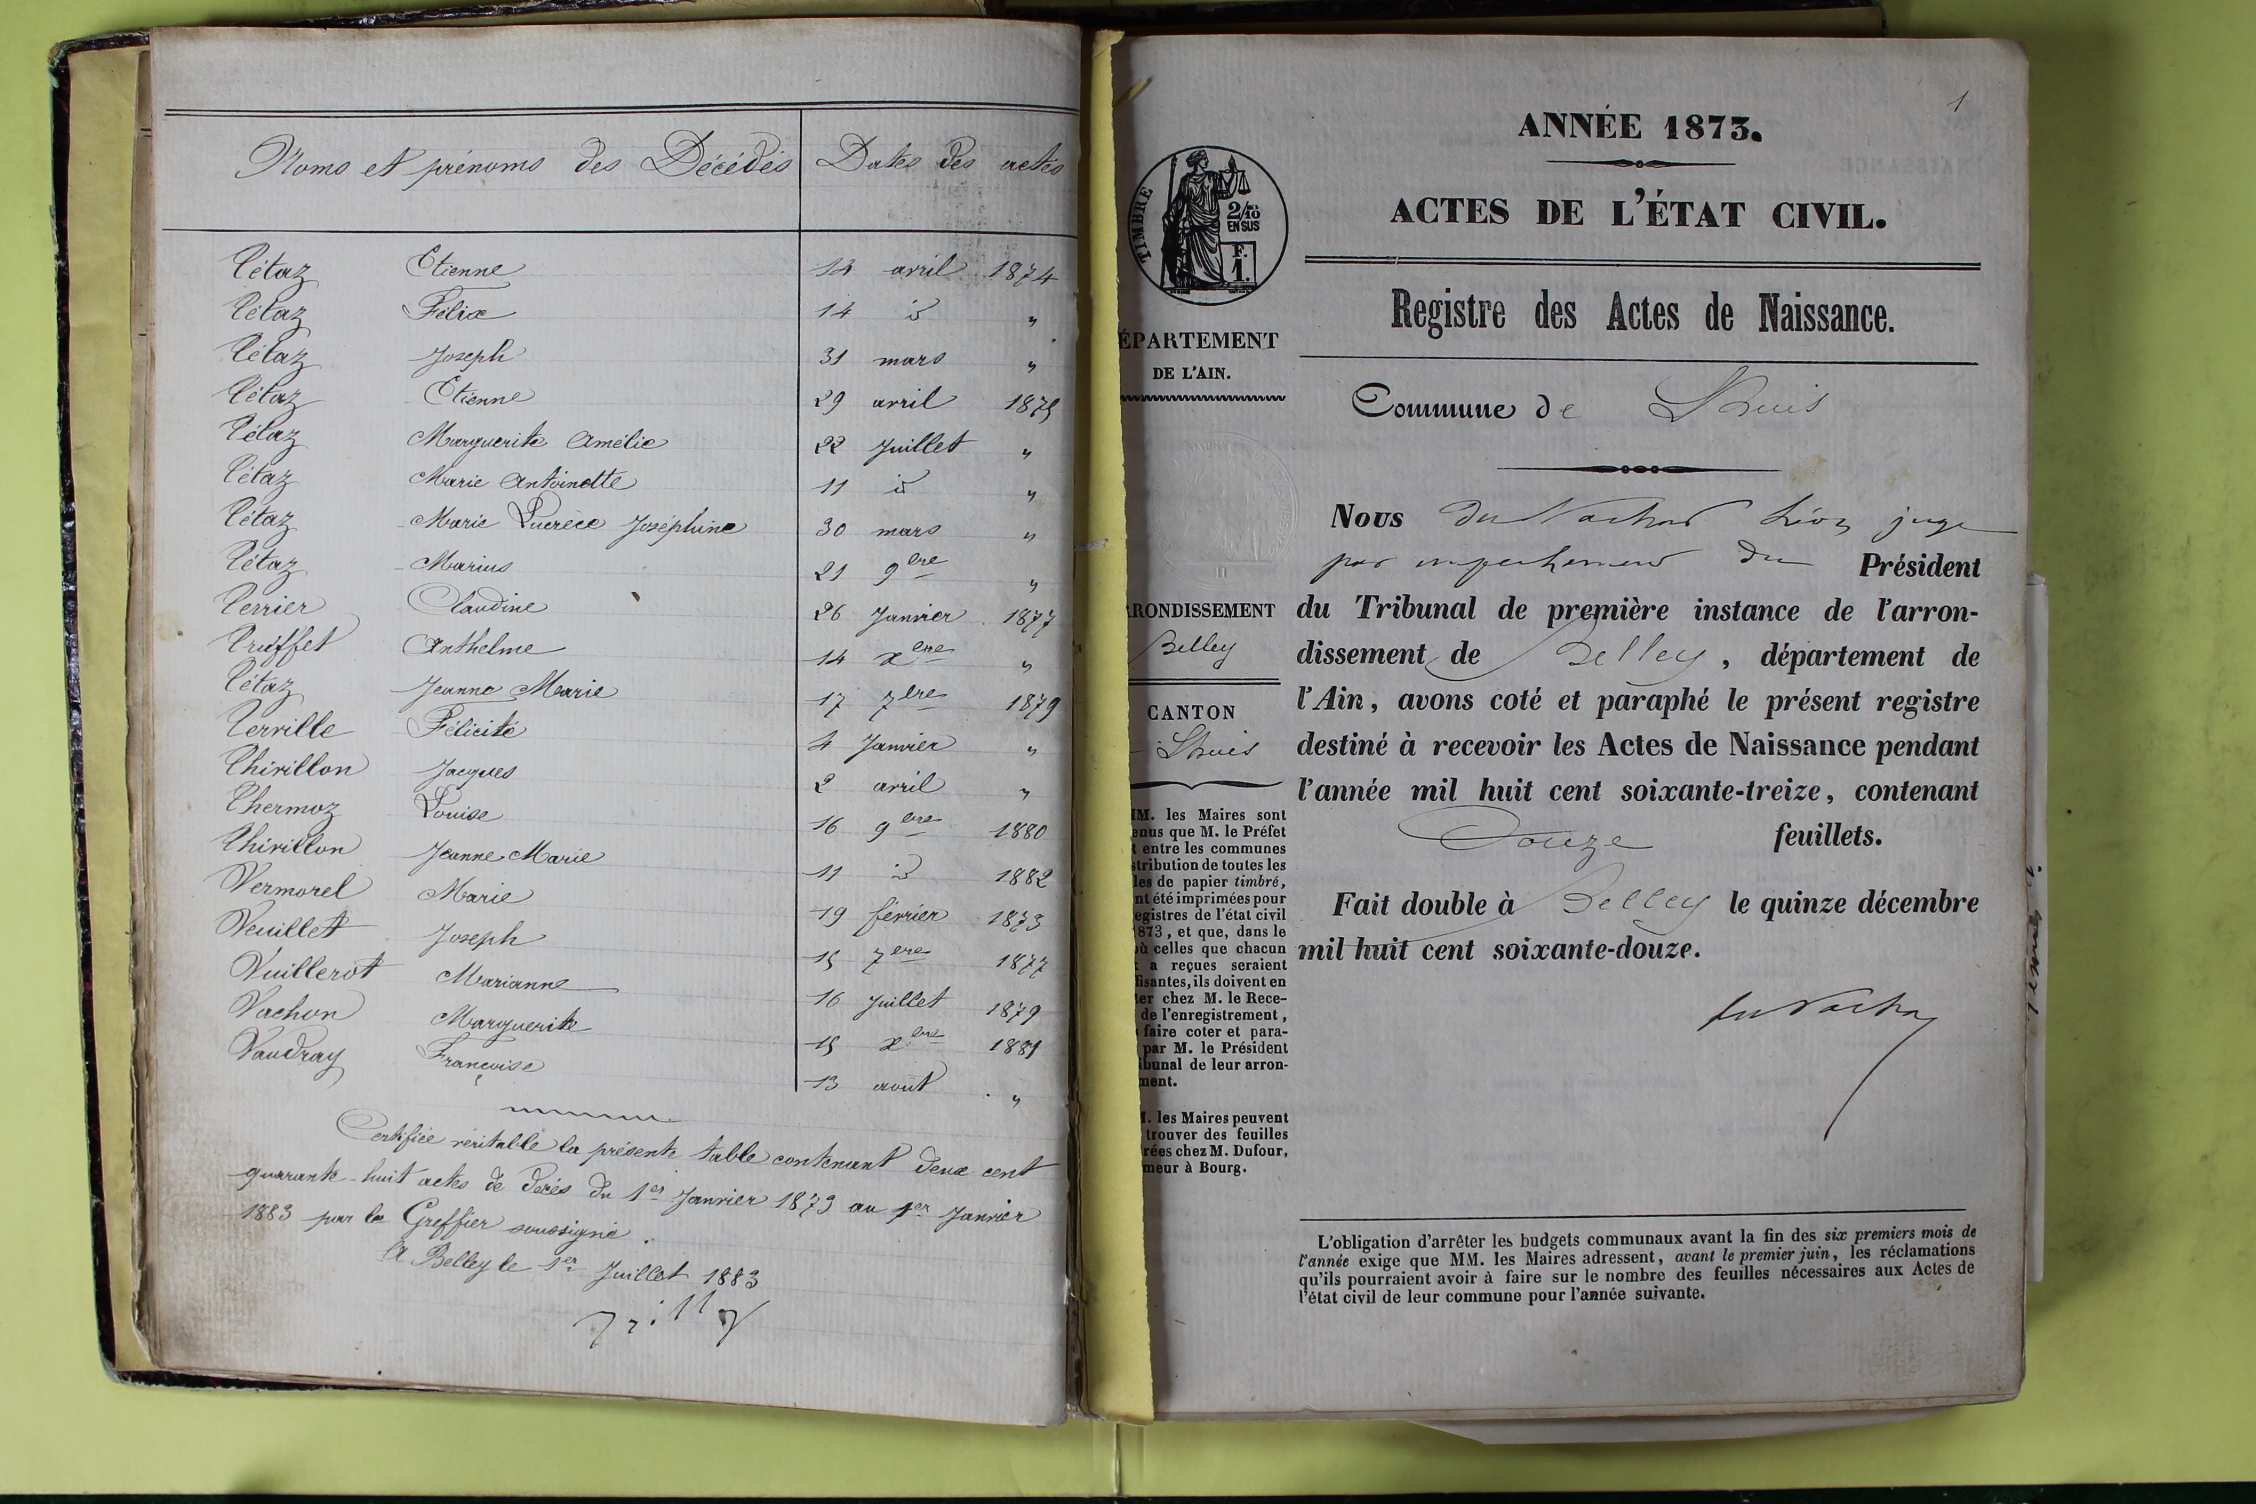 Noms et prénoms des Décédés Dates des actes
Pétaz Etienne 12 avril 1874
Pétaz Félix 14 id "
Pétaz Joseph 31 mars "
Pétaz Etienne 29 avril 1875
Pétaz Marguerite Amélie 22 Juillet "
Pétaz Marie Antoinette 11 id "
Pétaz Marie Lucrèce Joséphine 30 mars "
Pétaz Marius 21 9bre "
Perrier Claudine 26 Janvier 1877
Truffet Anthelme 14 xbre "
Pétaz Jeanne Marie 17 7bre 1879
Perville Félicité 4 Janvier "
Thivillon Jacques 2 avril "
Thermoz Louise 16 9bre 1880
Thivillon Jeanne Marie 11 id 1882
Vermorel Marie 19 février 1873
Veuillet Joseph 15 7bre 1877
Vuillerot Marianne 16 Juillet 1879
Vachon Marguerite 15 xbre 1881
Vaudray Françoise 13 août "
Certifiée véritable la présente table contenant deux cent
quarante-huit actes de décès du 1er Janvier 1873 au 1er Janvier
1883 par le Greffier soussigné.
A Belley le 1er Juillet 1883
1
ANNÉE 1873.
ACTES DE L'ÉTAT CIVIL.
Registre des Actes de Naissance.
Commune de Lhuis
TIMBRE
2/10
EN SUS
F.
1.
ÉPARTEMENT
DE L'AIN.
RRONDISSEMENT
Belley
CANTON
Lhuis
MM. les Maires sont
enus que M. le Préfet
t entre les communes
stribution de toutes les
les de papier timbré,
nt été imprimées pour
egistres de l'état civil
1873, et que, dans le
où celles que chacun
x a reçues seraient
fisantes, ils doivent en
ter chez M. le Rece-
de l'enregistrement,
faire coter et para-
par M. le Président
ibunal de leur arron-
ment.
M. les Maires peuvent
trouver des feuilles
rées chez M. Dufour,
meur à Bourg.
Nous du Vachat Léon juge
par empechement du Président
du Tribunal de première instance de l'arron-
dissement de Belley, département de
l'Ain, avons coté et paraphé le présent registre
destiné à recevoir les Actes de Naissance pendant
l'année mil huit cent soixante-treize, contenant
Douze feuillets.
Fait double à Belley le quinze décembre
mil huit cent soixante-douze.
du Vachat
L'obligation d'arrêter les budgets communaux avant la fin des six premiers mois de
l'année exige que MM. les Maires adressent, avant le premier juin, les réclamations
qu'ils pourraient avoir à faire sur le nombre des feuilles nécessaires aux Actes de
l'état civil de leur commune pour l'année suivante.